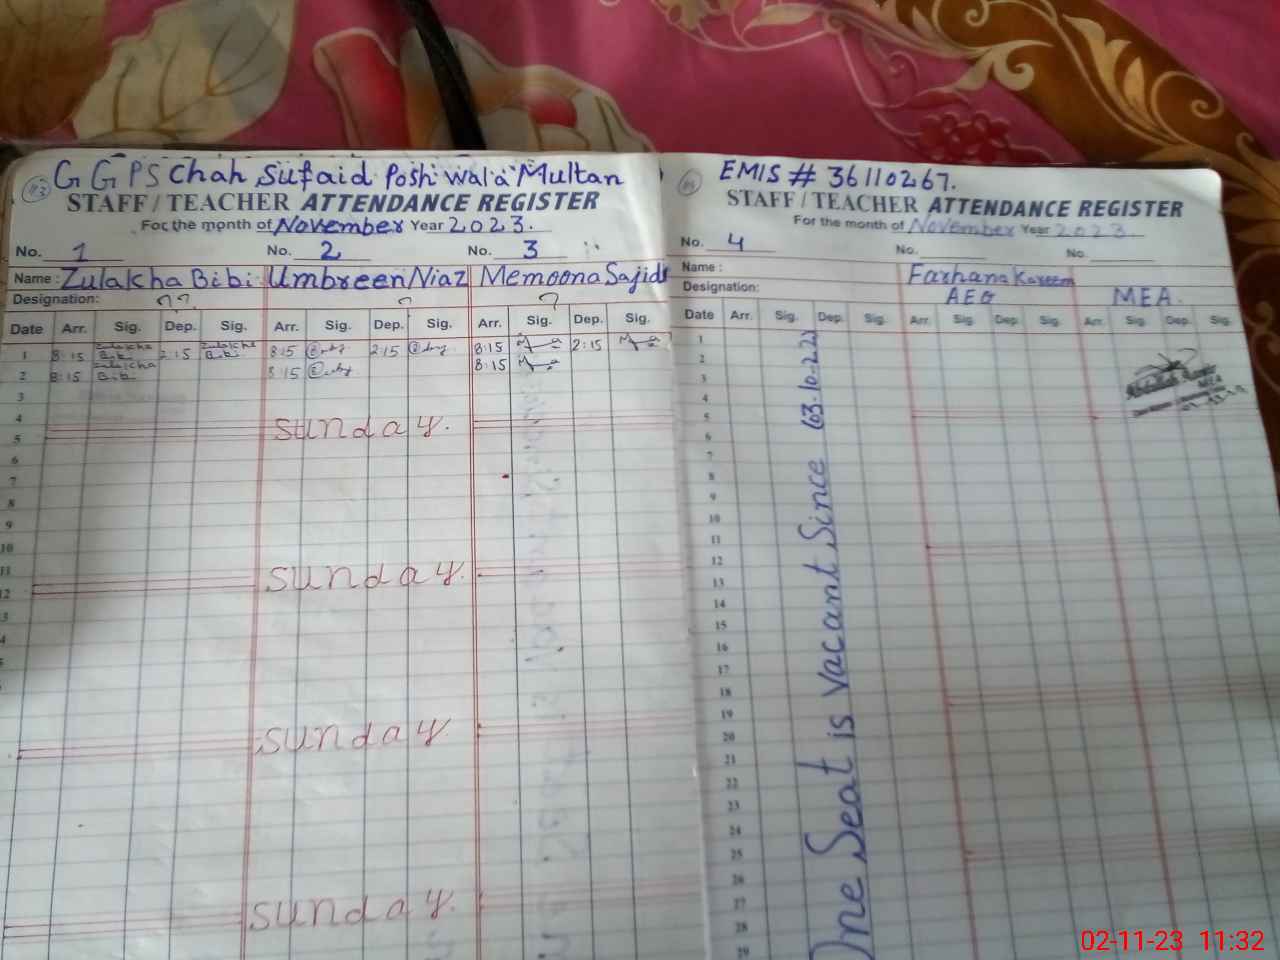 113
G G P S Chah Sufaid Poshi wala Multan
STAFF / TEACHER ATTENDANCE REGISTER
For the month of November Year 2023.
No. 1 No. 2 No. 3
Name : Zulakha Bibi Umbreen Niaz Memoona Sajid
Designation:
Date Arr. Sig. Dep. Sig. Arr. Sig. Dep. Sig. Arr. Sig. Dep. Sig.
1 8:15 Zulakha Bibi 2:15 Zulakha Bibi 8:15 2:15 8:15 2:15
2 8:15 Zulakha Bibi 8:15 8:15
3
4
5 sunday.
6
7
8
9
10
11
12 sunday.
sunday.
sunday.
EMIS # 36110267.
STAFF / TEACHER ATTENDANCE REGISTER
For the month of November Year 2023.
No. 4 No. No.
Name : Farhana Kareem
Designation: AEO MEA.
Date Arr. Sig. Dep. Sig. Arr. Sig. Dep. Sig. Arr. Sig. Dep. Sig.
1
2
3
4
5
6
7
8
9
10
11
12
13
14
15
16
17
18
19
20
21
22
23
24
25
26
27
28
29
One Seat is vacant Since (03.10.22)
02-11-23 11:32